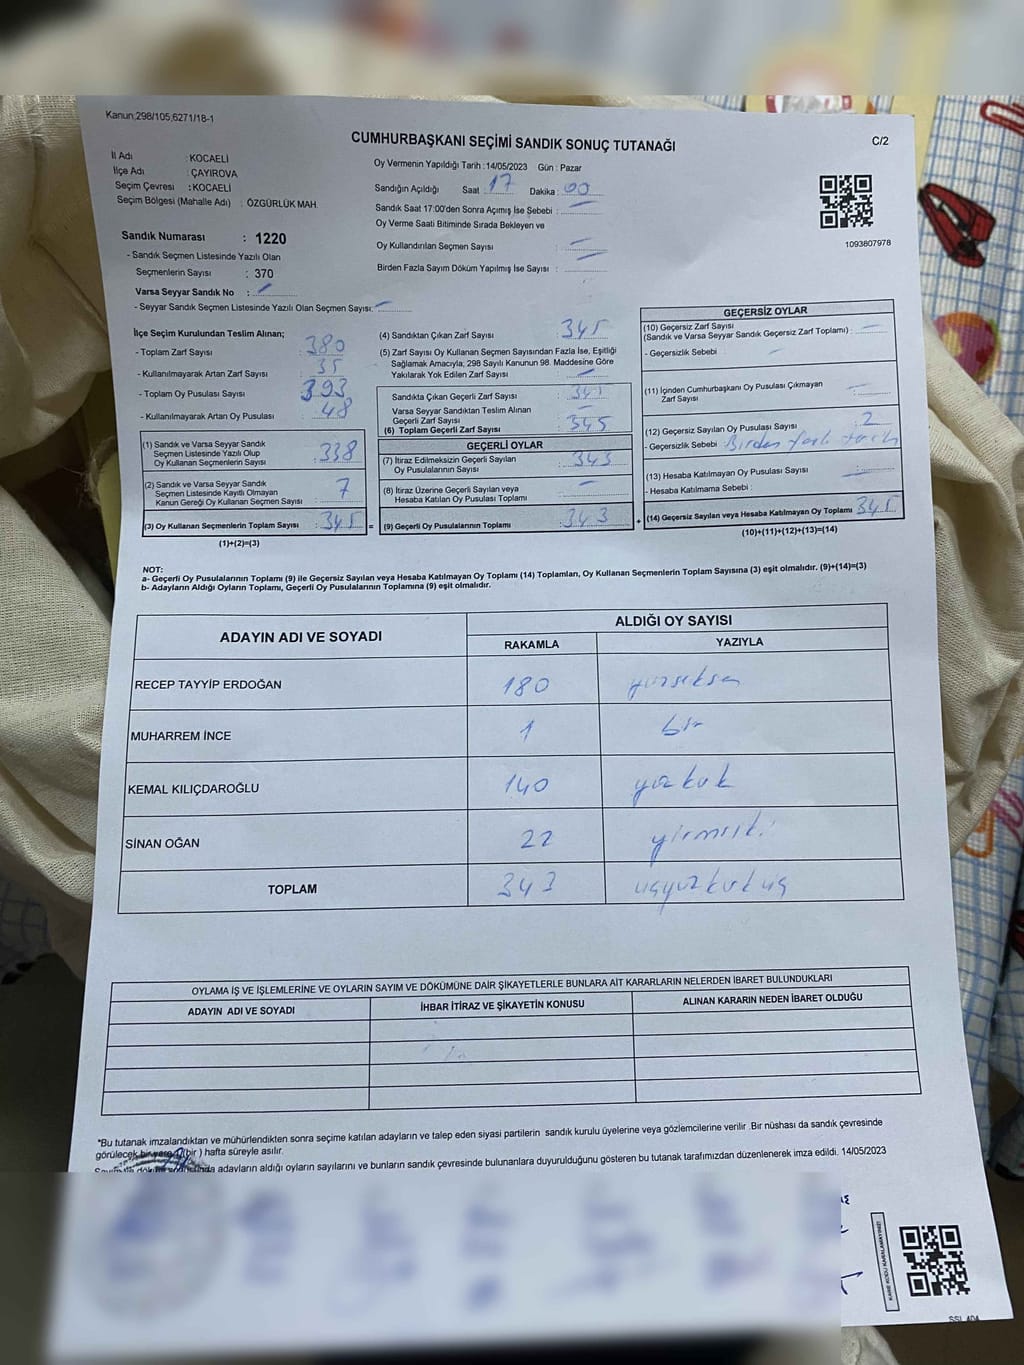 Kanun,298/105,6271/18-1
CUMHURBAŞKANI SEÇİMİ SANDIK SONUÇ TUTANAĞI
C/2
İl Adı : KOCAELİ
İlçe Adı : ÇAYIROVA
Seçim Çevresi : KOCAELİ
Seçim Bölgesi (Mahalle Adı) : ÖZGÜRLÜK MAH.
Oy Vermenin Yapıldığı Tarih : 14/05/2023 Gün : Pazar
Sandığın Açıldığı Saat : 17 Dakika : 00
Sandık Saat 17:00'den Sonra Açımış İse Sebebi :
Oy Verme Saati Bitiminde Sırada Bekleyen ve
Oy Kullandırılan Seçmen Sayısı :
Birden Fazla Sayım Döküm Yapılmış İse Sayısı :
1093807978
Sandık Numarası : 1220
- Sandık Seçmen Listesinde Yazılı Olan
Seçmenlerin Sayısı : 370
Varsa Seyyar Sandık No :
- Seyyar Sandık Seçmen Listesinde Yazılı Olan Seçmen Sayısı:
İlçe Seçim Kurulundan Teslim Alınan;
- Toplam Zarf Sayısı : 380
- Kullanılmayarak Artan Zarf Sayısı : 35
- Toplam Oy Pusulası Sayısı : 393
- Kullanılmayarak Artan Oy Pusulası : 48
(1) Sandık ve Varsa Seyyar Sandık
Seçmen Listesinde Yazılı Olup
Oy Kullanan Seçmenlerin Sayısı : 338
(2) Sandık ve Varsa Seyyar Sandık
Seçmen Listesinde Kayıtlı Olmayan
Kanun Gereği Oy Kullanan Seçmen Sayısı : 7
(3) Oy Kullanan Seçmenlerin Toplam Sayısı : 345 =
(1)+(2)=(3)
(4) Sandıktan Çıkan Zarf Sayısı : 345
(5) Zarf Sayısı Oy Kullanan Seçmen Sayısından Fazla İse, Eşitliği
Sağlamak Amacıyla, 298 Sayılı Kanunun 98. Maddesine Göre
Yakılarak Yok Edilen Zarf Sayısı :
Sandıkta Çıkan Geçerli Zarf Sayısı : 345
Varsa Seyyar Sandıktan Teslim Alınan
Geçerli Zarf Sayısı :
(6) Toplam Geçerli Zarf Sayısı : 345
GEÇERLİ OYLAR
(7) İtiraz Edilmeksizin Geçerli Sayılan
Oy Pusulalarının Sayısı : 343
(8) İtiraz Üzerine Geçerli Sayılan veya
Hesaba Katılan Oy Pusulası Toplamı :
(9) Geçerli Oy Pusulalarının Toplamı : 343 +
GEÇERSİZ OYLAR
(10) Geçersiz Zarf Sayısı
(Sandık ve Varsa Seyyar Sandık Geçersiz Zarf Toplamı) :
- Geçersizlik Sebebi :
(11) İçinden Cumhurbaşkanı Oy Pusulası Çıkmayan
Zarf Sayısı :
(12) Geçersiz Sayılan Oy Pusulası Sayısı : 2
- Geçersizlik Sebebi : Birden fazla tercih
(13) Hesaba Katılmayan Oy Pusulası Sayısı :
- Hesaba Katılmama Sebebi :
(14) Geçersiz Sayılan veya Hesaba Katılmayan Oy Toplamı : 345
(10)+(11)+(12)+(13)=(14)
NOT:
a- Geçerli Oy Pusulalarının Toplamı (9) ile Geçersiz Sayılan veya Hesaba Katılmayan Oy Toplamı (14) Toplamları, Oy Kullanan Seçmenlerin Toplam Sayısına (3) eşit olmalıdır. (9)+(14)=(3)
b- Adayların Aldığı Oyların Toplamı, Geçerli Oy Pusulalarının Toplamına (9) eşit olmalıdır.
ADAYIN ADI VE SOYADI
ALDIĞI OY SAYISI
RAKAMLA YAZIYLA
RECEP TAYYİP ERDOĞAN 180 yüzseksen
MUHARREM İNCE 1 bir
KEMAL KILIÇDAROĞLU 140 yüzkırk
SİNAN OĞAN 22 yirmiiki
TOPLAM 343 üçyüzkırküç
OYLAMA İŞ VE İŞLEMLERİNE VE OYLARIN SAYIM VE DÖKÜMÜNE DAİR ŞİKAYETLERLE BUNLARA AİT KARARLARIN NELERDEN İBARET BULUNDUKLARI
ADAYIN ADI VE SOYADI İHBAR İTİRAZ VE ŞİKAYETİN KONUSU ALINAN KARARIN NEDEN İBARET OLDUĞU
*Bu tutanak imzalandıktan ve mühürlendikten sonra seçime katılan adayların ve talep eden siyasi partilerin sandık kurulu üyelerine veya gözlemcilerine verilir .Bir nüshası da sandık çevresinde
görülecek bir yere 1(bir ) hafta süreyle asılır.
adayların aldığı oyların sayılarını ve bunların sandık çevresinde bulunanlara duyurulduğunu gösteren bu tutanak tarafımızdan düzenlenerek imza edildi. 14/05/2023